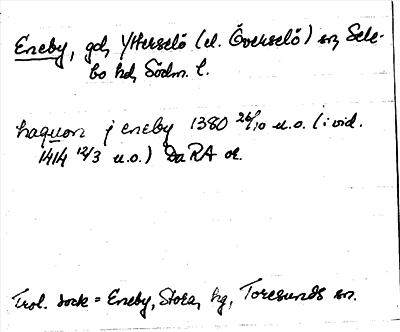 Eneby, gd, Ytterselö (el. Överselö) sn, Sele-
bo hd, Södm. l.
haquon j eneby 1380 26/10 u.o. (i vid.
1414 12/3 u.o.) DaRA or.
Trol. dock = Eneby, Stora, hg, Toresunds sn.